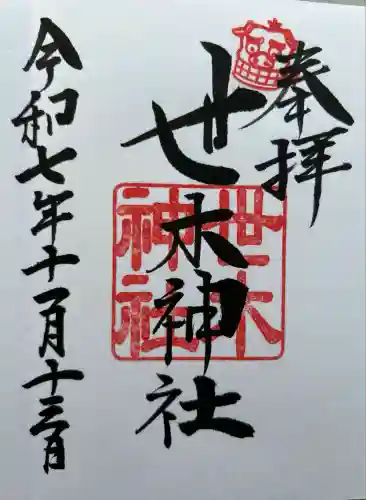 奉拝
世木神社
世木神社
令和七年十一月十三日